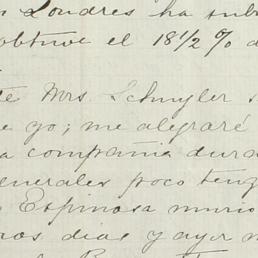 Londres ha sub
obtuve el 18½ % d
te Mrs. Schuyler s
e yo; me alegraré
a compañia dura
enerales poco teng
Espinosa murio
ros dias y ayer m